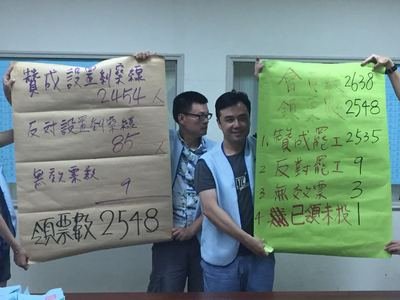 贊成設置糾察線
2454人
反對設置糾察線
85人
無效票數
9
領票數2548
2638
領票 2548
1. 贊成罷工 2535
2. 反對罷工 9
3. 無效票 3
4 已領未投 1